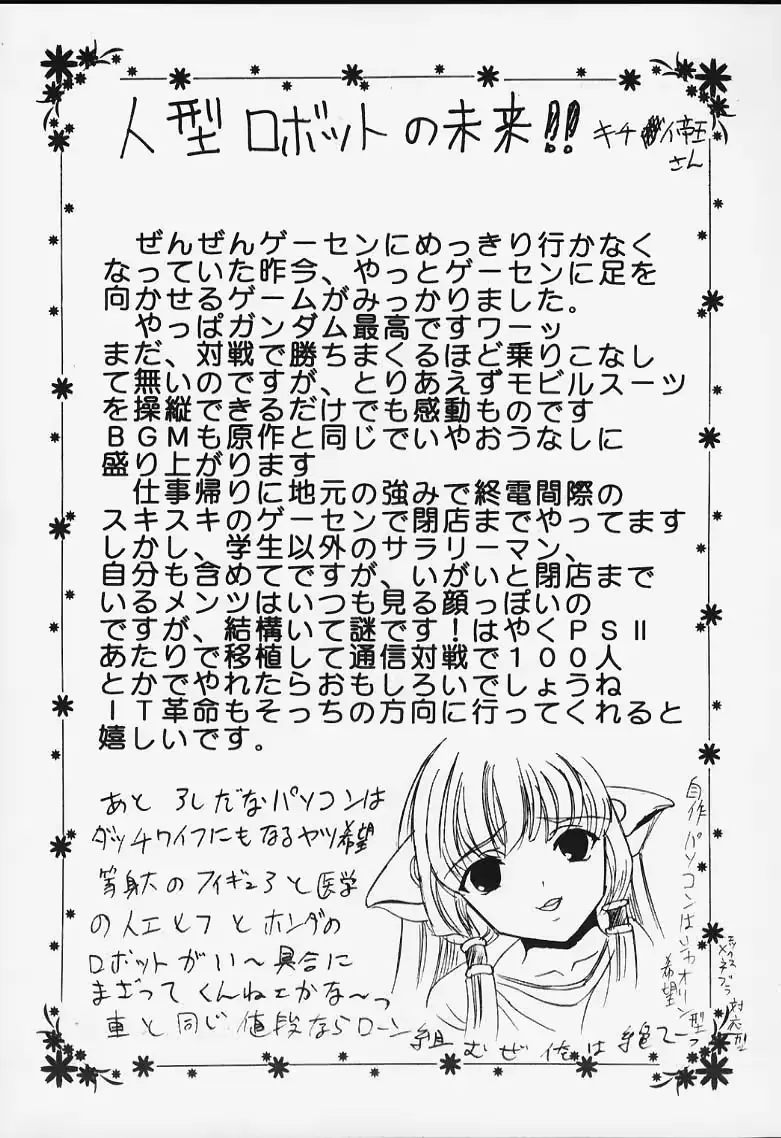 人型ロボットの未来!!
キチ イ帝王
さん
ぜんぜんゲーセンにめっきり行かなく
なっていた昨今、やっとゲーセンに足を
向かせるゲームがみっかりました。
やっぱガンダム最高ですワーッ
まだ、対戦で勝ちまくるほど乗りこなし
て無いのですが、とりあえずモビルスーツ
を操縦できるだけでも感動ものです
BGMも原作と同じでいやおうなしに
盛り上がります
仕事帰りに地元の強みで終電間際の
スキスキのゲーセンで閉店までやってます
しかし、学生以外のサラリーマン、
自分も含めてですが、いがいと閉店まで
いるメンツはいつも見る顔っぽいの
ですが、結構いて謎です!はやくPSII
あたりで移植して通信対戦で100人
とかでやれたらおもしろいでしょうね
IT革命もそっちの方向に行ってくれると
嬉しいです。
あと ろしだなパソコンは
ダッチワイフにもなるヤツ希望
等身大のフィギュアと医学
の人工ヒフとホンダの
ロボットがい〜具合に
まざってくんねェかな〜っ
車と同じ値段ならローン組むぜ俺は絶てーっ
自作パソコンは
オリジン型
希望
対応型